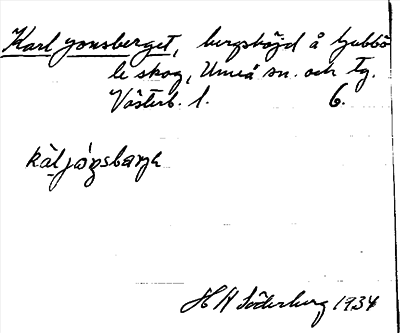 Karl jonsberget, bergshöjd å Ljubbö
le skog, Umeå sn. och tg.
Västerb. l. 6.
kàl jógsbarje
H H Söderberg 1934